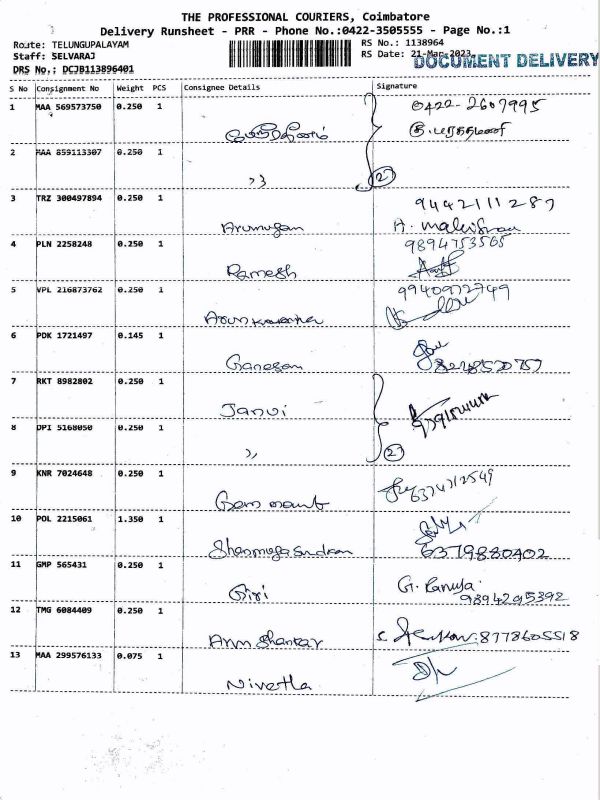 THE PROFESSIONAL COURIERS, Coimbatore
Delivery Runsheet - PRR - Phone No.:0422-3505555 - Page No.:1
Route: TELUNGUPALAYAM RS No.: 1138964
Staff: SELVARAJ RS Date: 21-Mar-2023
DOCUMENT DELIVERY
DRS No.: DCJB113896401
S No Consignment No Weight PCS Consignee Details Signature
1 MAA 569573750 0.250 1 0422-2607995
2 MAA 859113307 0.250 1
,, (2)
3 TRZ 300497894 0.250 1 9442111287
Arumugam A.
4 PLN 2258248 0.250 1 9894753565
Ramesh
5 VPL 216873762 0.250 1 9940972749
6 PDK 1721497 0.145 1
Ganesan
7 RKT 8982802 0.250 1
Janvi
8 DPI 5168050 0.250 1
,, (2)
9 KNR 7024648 0.250 1 6374712549
10 POL 2215061 1.350 1
6379880402
11 GMP 565431 0.250 1
Giri G. Ramya
9894295392
12 TMG 6084409 0.250 1
Arun Shankar 8778605518
13 MAA 299576133 0.075 1
Nivetha